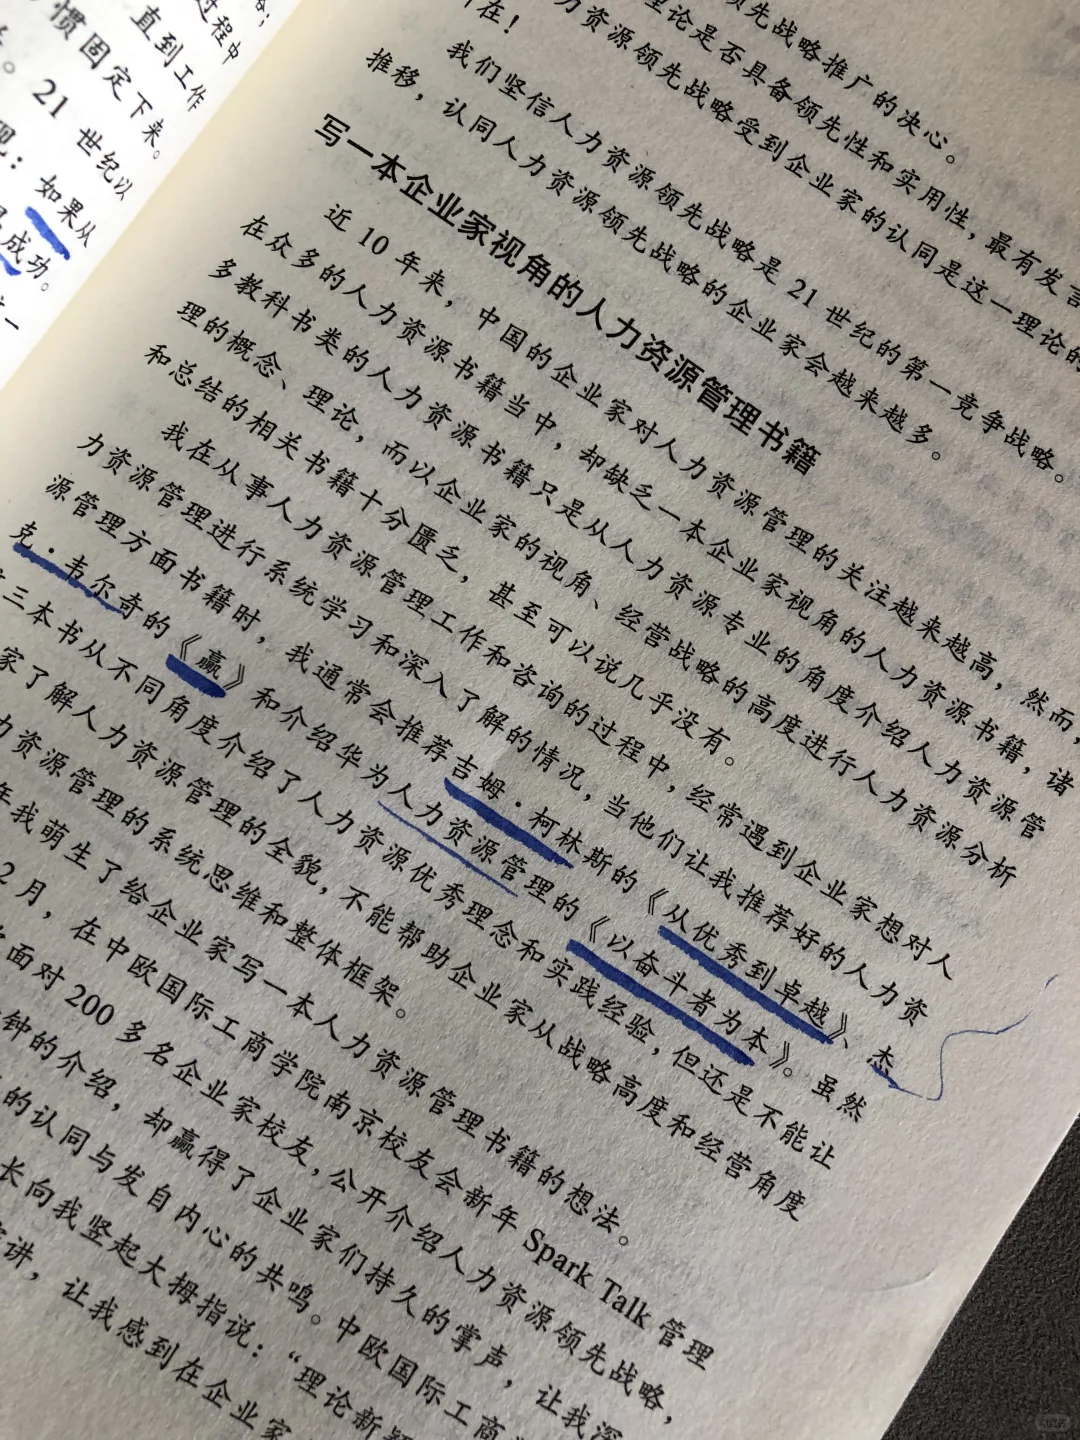 程中
直到工作
惯固定下来。
21 世纪以
现：如果从
成功。
一
领先战略推广的决心。
理论是否具备领先性和实用性，最有发言
力资源领先战略受到企业家的认同是这一理论的
所在！
我们坚信人力资源领先战略是 21 世纪的第一竞争战略。
推移，认同人力资源领先战略的企业家会越来越多。
写一本企业家视角的人力资源管理书籍
近 10 年来，中国的企业家对人力资源管理的关注越来越高，然而，
在众多的人力资源书籍当中，却缺乏一本企业家视角的人力资源书籍，诸
多教科书类的人力资源书籍只是从人力资源专业的角度介绍人力资源管
理的概念、理论，而以企业家的视角、经营战略的高度进行人力资源分析
和总结的相关书籍十分匮乏，甚至可以说几乎没有。
我在从事人力资源管理工作和咨询的过程中，经常遇到企业家想对人
力资源管理进行系统学习和深入了解的情况，当他们让我推荐好的人力资
源管理方面书籍时，我通常会推荐吉姆·柯林斯的《从优秀到卓越》、杰
克·韦尔奇的《赢》和介绍华为人力资源管理的《以奋斗者为本》。虽然
三本书从不同角度介绍了人力资源优秀理念和实践经验，但还是不能让
家了解人力资源管理的全貌，不能帮助企业家从战略高度和经营角度
力资源管理的系统思维和整体框架。
年我萌生了给企业家写一本人力资源管理书籍的想法。
2 月，在中欧国际工商学院南京校友会新年 Spark Talk 管理
面对 200 多名企业家校友，公开介绍人力资源领先战略，
钟的介绍，却赢得了企业家们持久的掌声，让我深
的认同与发自内心的共鸣。中欧国际工商
长向我竖起大拇指说：“理论新
讲，让我感到在企业家